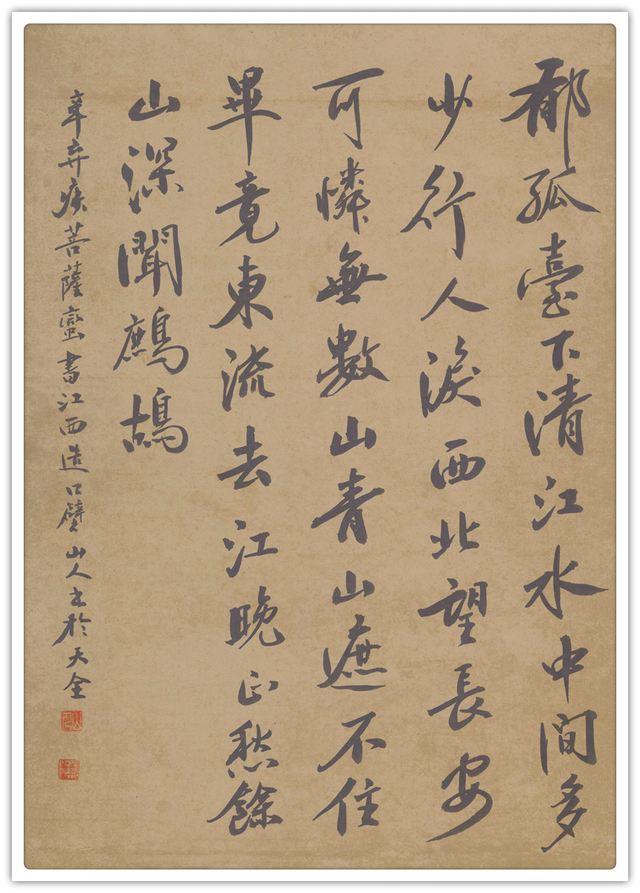 郁孤臺下清江水中間多
少行人淚西北望長安
可憐無數山青山遮不住
畢竟東流去江晚正愁餘
山深聞鷓鴣
辛弃疾菩薩蠻書江西造口壁山人書於天全